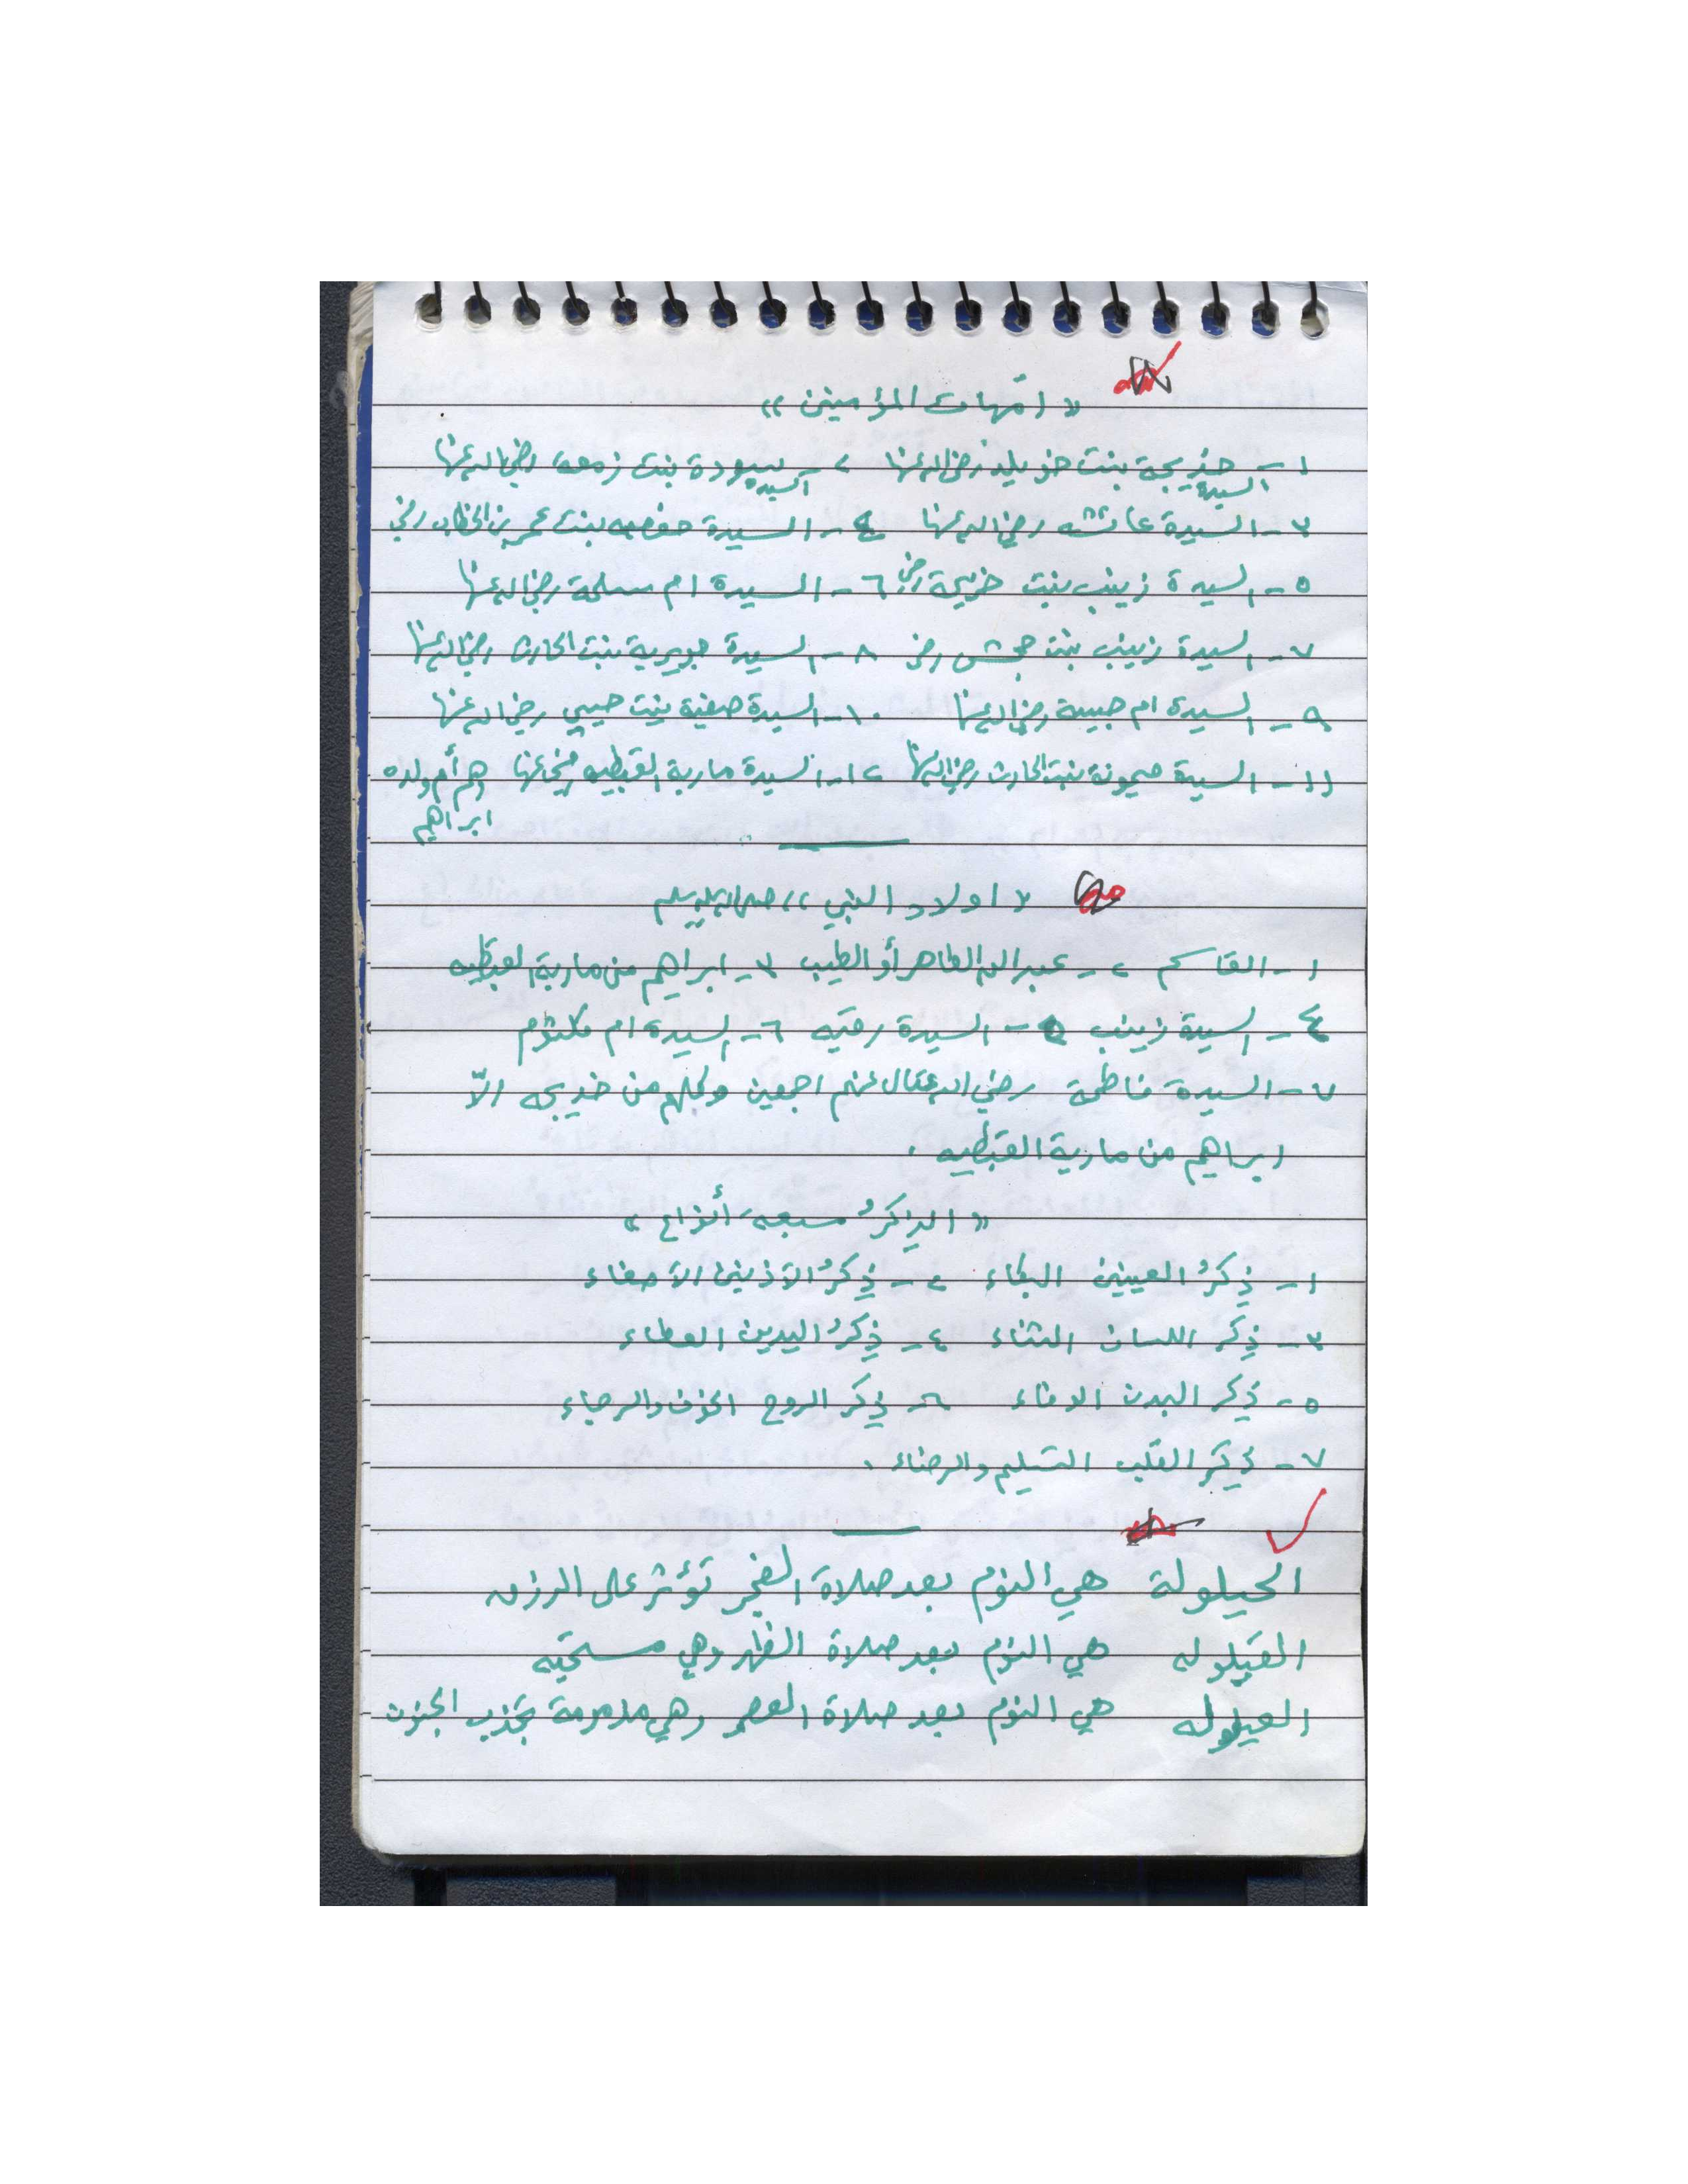 « امّهات المؤمنين »
١- السيدة خديجة بنت خويلد رضي الله عنها ٢- السيدة سودة بنت زمعه رضي الله عنها
٣- السيدة عائشه رضي الله عنها ٤- السيدة حفصه بنت عمر بن الخطاب رضي
٥- السيدة زينب بنت خزيمة رضي ٦- السيدة ام سلمة رضي الله عنها
٧- السيدة زينب بنت جحش رضي ٨- السيدة جويرية بنت الحارث رضي الله عنها
٩- السيدة ام حبيبة رضي الله عنها ١٠- السيدة صفية بنت حيي رضي الله عنها
١١- السيدة ميمونة بنت الحارث رضي الله عنها ١٢- السيدة مارية القبطيه رضي عنها هم أم ولده
ابراهيم
« اولاد النبي » صلى الله عليه وسلم
١- القاسم ٢- عبد الله الطاهر أو الطيب ٣- ابراهيم من مارية القبطيه
٤- السيدة زينب ٥- السيدة رقيه ٦- السيدة ام كلثوم
٧- السيدة فاطمة رضي الله تعالى عنهم اجمعين وكلهم من خديجه الاّ
ابراهيم من مارية القبطيه .
« الذِكرُ سبعة أنواع »
١- ذِكرُ العينين البكاء ٢- ذِكرُ الأذنين الأصغاء
٣- ذِكر اللسان الثناء ٤- ذِكرُ اليدين العطاء
٥- ذِكر البدن الوفاء ٦- ذِكر الروح الخوف والرجاء
٧- ذِكر القلب التسليم والرضاء .
الحيلولة هي النوم بعد صلاة الفجر تؤثر على الرزق
القيلوله هي النوم بعد صلاة الظهر وهي مستحبه
العيلوله هي النوم بعد صلاة العصر وهي مذمومة تجذب الجنون